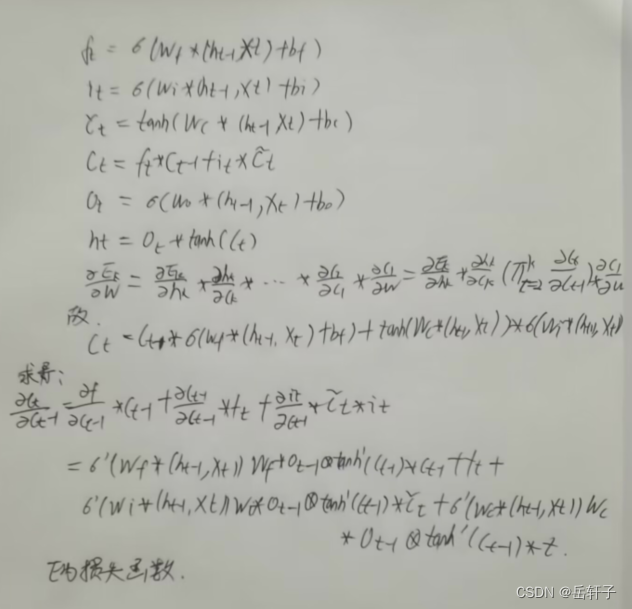 ft = σ(Wf*(ht-1,Xt)+bf)
it = σ(Wi*(ht-1,Xt)+bi)
C̃t = tanh(Wc*(ht-1,Xt)+bc)
Ct = ft*Ct-1+it*C̃t
Ot = σ(Wo*(ht-1,Xt)+bo)
ht = Ot*tanh(Ct)
∂Ek/∂W = ∂Ek/∂hk * ∂hk/∂Ck * ··· * ∂C2/∂C1 * ∂C1/∂W = ∂Ek/∂hk * ∂hk/∂Ck (∏_{t=2}^{k} ∂Ct/∂Ct-1) * ∂C1/∂W
故.
Ct = Ct-1*σ(Wf*(ht-1,Xt)+bf)+tanh(Wc*(ht-1,Xt))*σ(Wi*(ht-1,Xt)
求导:
∂Ct/∂Ct-1 = ∂f/∂Ct-1 *Ct-1 + ∂Ct-1/∂Ct-1 *ft + ∂it/∂Ct-1 * C̃t*it
= σ'(Wf*(ht-1,Xt))Wf*Ot-1⊗tanh'(Ct-1)*Ct-1+ft+
σ'(Wi*(ht-1,Xt))Wi*Ot-1⊗tanh'(Ct-1)*C̃t+σ'(Wc*(ht-1,Xt))Wc
*Ot-1⊗tanh'(Ct-1)*t.
E为损失函数.
CSDN @岳轩子